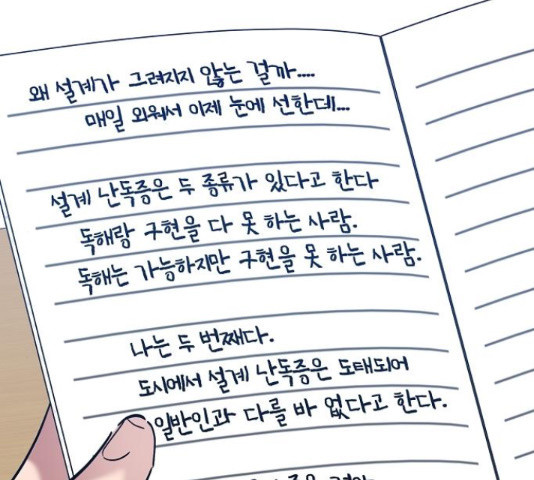 왜 설계가 그려지지 않는 걸까....
매일 외워서 이제 눈에 선한데...
설계 난독증은 두 종류가 있다고 한다
독해랑 구현을 다 못 하는 사람.
독해는 가능하지만 구현을 못 하는 사람.
나는 두 번째다.
도시에서 설계 난독증은 도태되어
일반인과 다를 바 없다고 한다.